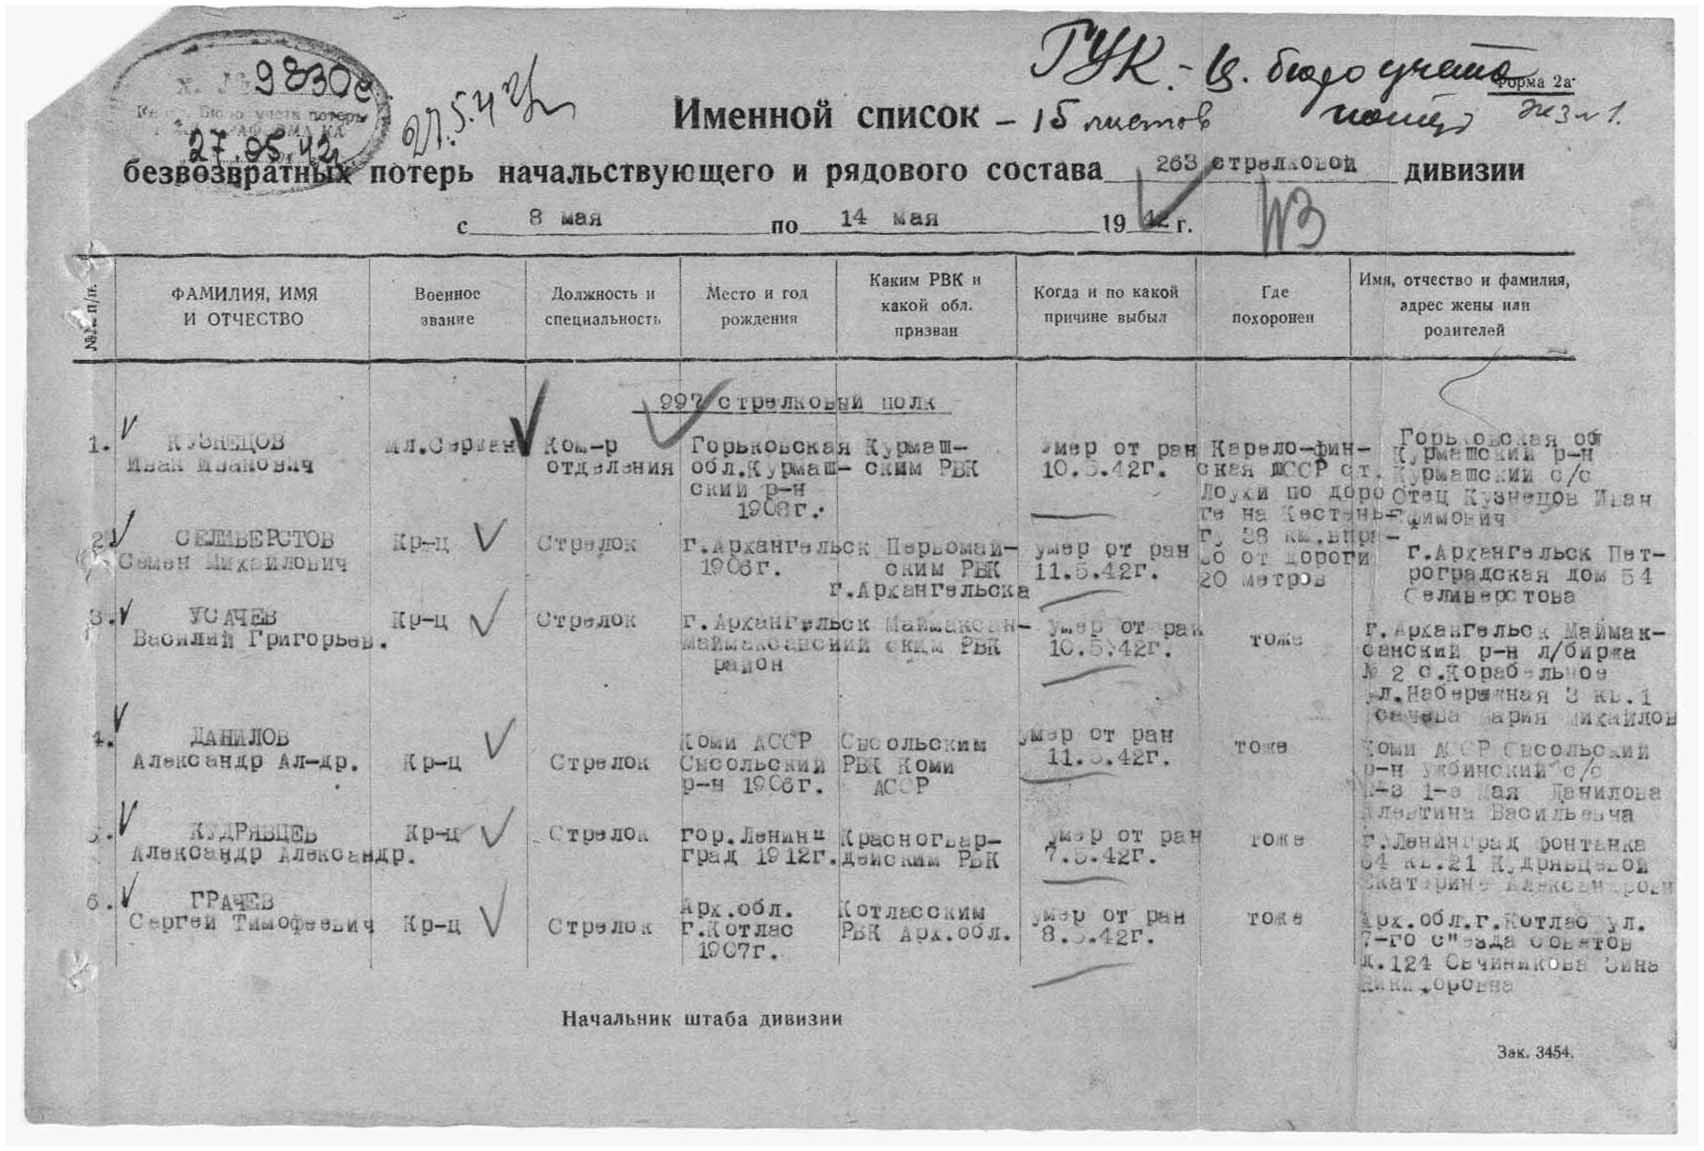 9830с
27.05.42
27.5.42
ГУК - Ц. бюро учета
Форма 2а
Именной список - 15 листов
Экз №1.
безвозвратных потерь начальствующего и рядового состава 263 стрелковой дивизии
с 8 мая по 14 мая 1942 г.
№№ п/п.
ФАМИЛИЯ, ИМЯ
И ОТЧЕСТВО
Военное
звание
Должность и
специальность
Место и год
рождения
Каким РВК и
какой обл.
призван
Когда и по какой
причине выбыл
Где
похоронен
Имя, отчество и фамилия,
адрес жены или
родителей
997 стрелковый полк
1. КУЗНЕЦОВ
Иван Иванович
Мл.Сержан
Ком-р
отделения
Горьковская
обл.Курмаш-
ский р-н
1908г.
Курмаш-
ским РВК
умер от ран
10.5.42г.
Карело-фин-
ская ССР ст.
Лоухи по доро
ге на Кестень-
гу 38 км.впра-
во от дороги
20 метров
Горьковская об
Курмашский р-н
Курмашский с/с
Отец Кузнецов Иван
фимович
2. СЕЛИВЕРСТОВ
Семен Михаилович
Кр-ц
Стрелок
г.Архангельск
1906г.
Первомай-
ским РВК
г.Архангельска
умер от ран
11.5.42г.
г.Архангельск Пет-
роградская дом 54
Селиверстова
3. УСАЧЕВ
Василий Григорьев.
Кр-ц
Стрелок
г.Архангельск
Маймаксанский
район
Маймаксан-
ским РВК
умер от ран
10.5.42г.
тоже
г.Архангельск Маймак-
санский р-н л/биржа
№ 2 с.Корабельное
ул.Набережная 3 кв.1
Усачева Мария Михайлов
4. ДАНИЛОВ
Александр Ал-др.
Кр-ц
Стрелок
Коми АССР
Сысольский
р-н 1906г.
Сысольским
РВК Коми
АССР
умер от ран
11.5.42г.
тоже
Коми АССР Сысольский
р-н Ужбинский с/с
к-з 1-е Мая Данилова
Алевтина Васильевча
5. КУДРЯВЦЕВ
Александр Александр.
Кр-ц
Стрелок
гор.Ленин
град 1912г.
Красногвар-
дейским РВК
умер от ран
7.5.42г.
тоже
г.Ленинград фонтанка
64 кв.21 Кудрявцевой
Екатерине Александровн
6. ГРАЧЕВ
Сергей Тимофеевич
Кр-ц
Стрелок
Арх.обл.
г.Котлас
1907г.
Котласским
РВК Арх.обл.
умер от ран
8.5.42г.
тоже
Арх.обл.г.Котлас ул.
7-го с"езда советов
д.124 Овчиникова Зина
Никифоровна
Начальник штаба дивизии
Зак. 3454.